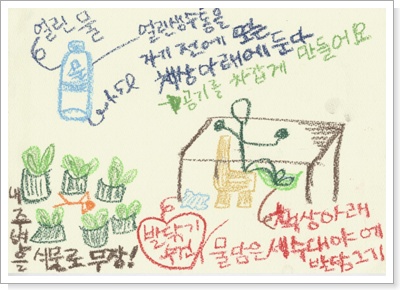 얼린 물
얼린생수통을
자기 전에 또는
책상 아래에 둔다
→공기를 차갑게 만들어요
내
주
변
을 식물로 무장!
발닦기
수건
책상아래
물담은 세수대야에
발담그기